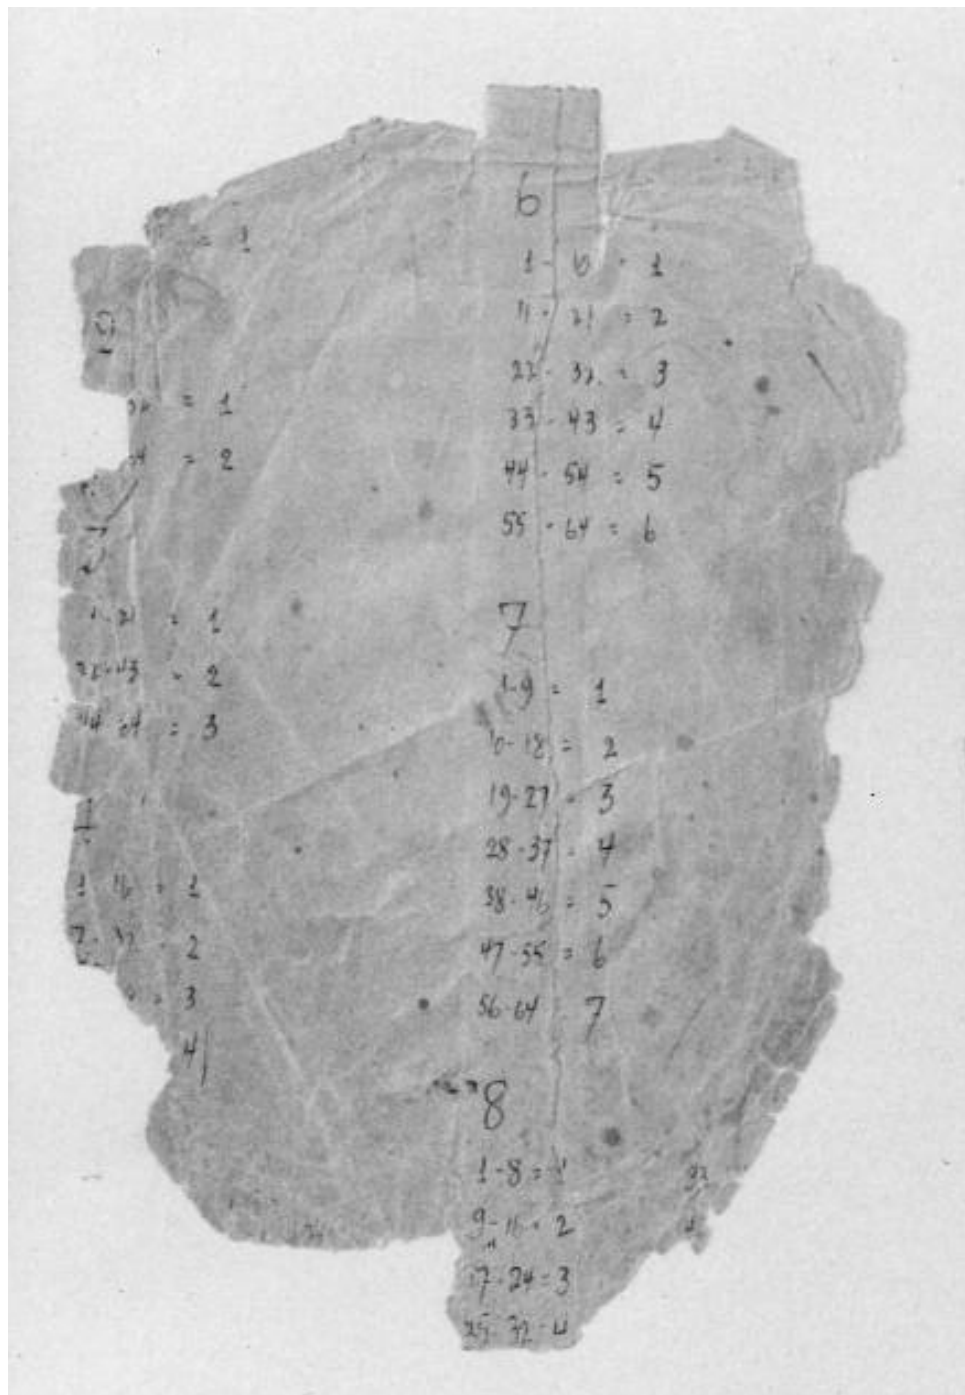 = 1
= 1
= 2
21 = 1
22-43 = 2
44 64 = 3
1 16 = 1
32 2
= 3
4
6
1 - 10 = 1
11 - 21 = 2
22 - 32 = 3
33 - 43 = 4
44 - 54 = 5
55 - 64 = 6
7
1-9 = 1
10-18 = 2
19-27 = 3
28-37 = 4
38-46 = 5
47-55 = 6
56-64 7
8
1-8 = 1
9-16 = 2
17-24 = 3
25-32 = 4